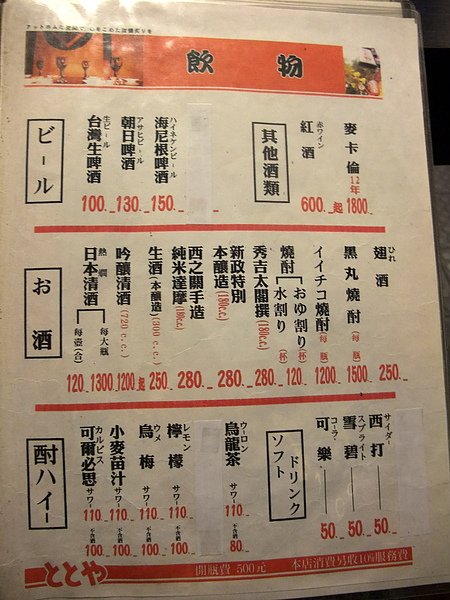 飲物
ビール
生ビール
台灣生啤酒
100.
アサヒビール
朝日啤酒
130.
ハイネケンビール
海尼根啤酒
150.
其他酒類
赤ワイン
紅酒
600.起
麥卡倫12年
1800.
お酒
熱燗
日本清酒
每壺(合)
120
每大瓶
1300
吟釀清酒(720c.c.)
1200起
生酒(本釀造)(300c.c.)
250.
西之關手造
純米達摩(180c.c.)
280.
新政特別
本釀造(180c.c.)
280.
秀吉太閤撰(180c.c.)
280.
燒酎
水割り
おゆ割り(杯)
120
イイチコ燒酎(每瓶)
1200
黑丸燒酎(每瓶)
1500
ひれ
翅酒
250.
酎ハイー
カルピス
可爾必思サワー
110.
不含酒
100.
小麥苗汁サワー
110.
不含酒
100.
ウメ
烏梅サワー
110.
不含酒
100.
レモン
檸檬サワー
110.
不含酒
100.
ウーロン
烏龍茶
110.
不含酒
80.
ソフトドリンク
コーラ
可樂
50.
スプライト
雪碧
50.
サイダー
西打
50.
ととや
開瓶費 500元
本店消費另收10%服務費